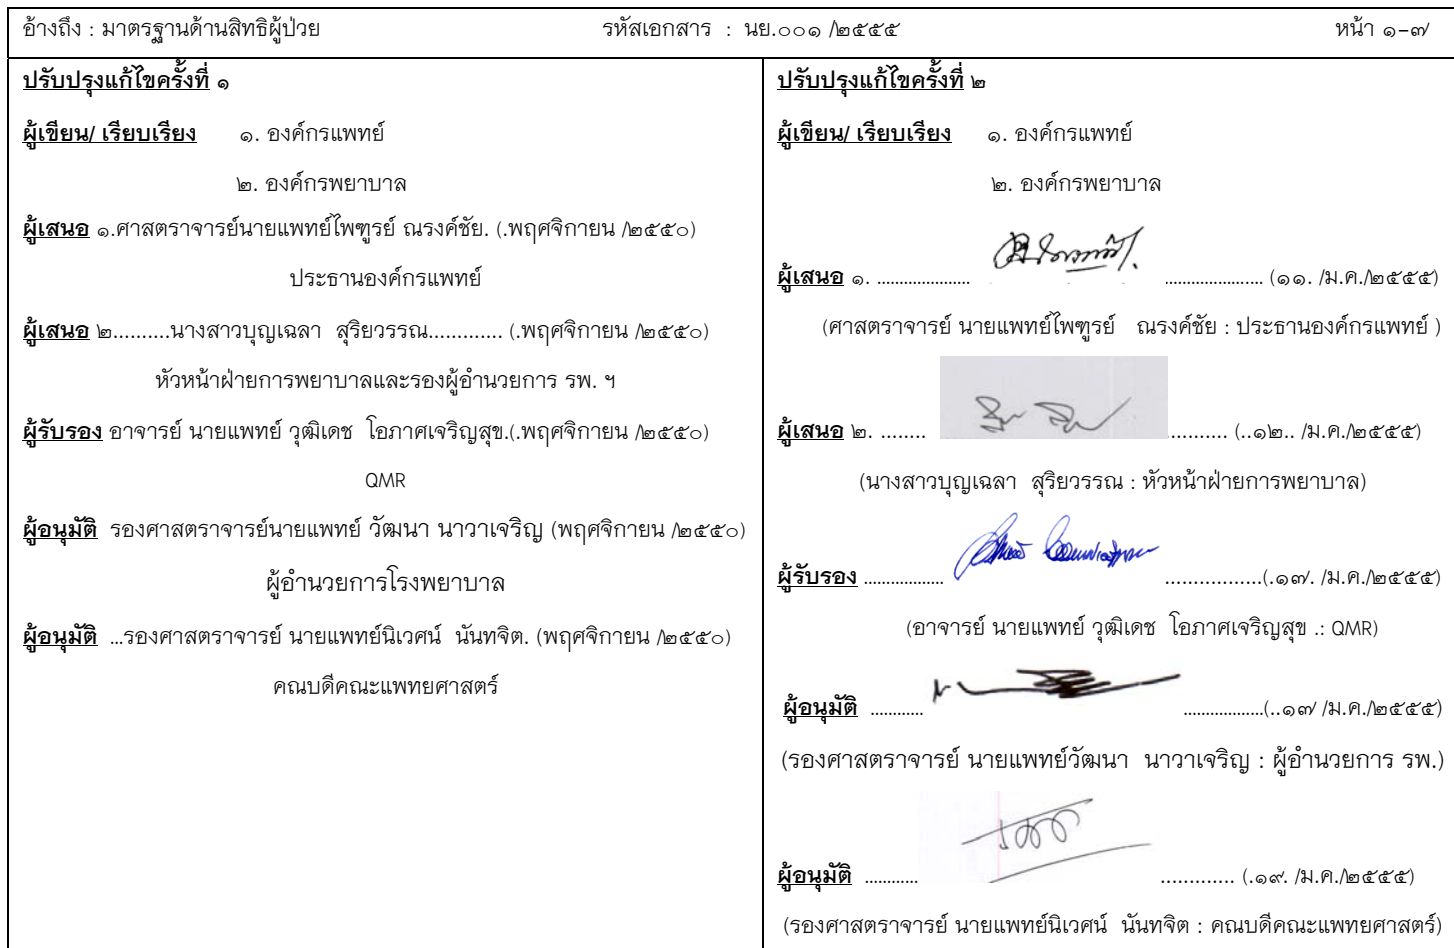 อ้างถึง : มาตรฐานด้านสิทธิผู้ป่วย รหัสเอกสาร : นย.๐๐๑ /๒๕๕๕ หน้า ๑-๗
ปรับปรุงแก้ไขครั้งที่ ๑
ผู้เขียน/ เรียบเรียง ๑. องค์กรแพทย์
๒. องค์กรพยาบาล
ผู้เสนอ ๑.ศาสตราจารย์นายแพทย์ไพฑูรย์ ณรงค์ชัย. (.พฤศจิกายน /๒๕๕๐)
ประธานองค์กรแพทย์
ผู้เสนอ ๒..........นางสาวบุญเฉลา สุริยวรรณ............. (.พฤศจิกายน /๒๕๕๐)
หัวหน้าฝ่ายการพยาบาลและรองผู้อำนวยการ รพ. ฯ
ผู้รับรอง อาจารย์ นายแพทย์ วุฒิเดช โอภาศเจริญสุข.(.พฤศจิกายน /๒๕๕๐)
QMR
ผู้อนุมัติ รองศาสตราจารย์นายแพทย์ วัฒนา นาวาเจริญ (พฤศจิกายน /๒๕๕๐)
ผู้อำนวยการโรงพยาบาล
ผู้อนุมัติ ...รองศาสตราจารย์ นายแพทย์นิเวศน์ นันทจิต. (พฤศจิกายน /๒๕๕๐)
คณบดีคณะแพทยศาสตร์
ปรับปรุงแก้ไขครั้งที่ ๒
ผู้เขียน/ เรียบเรียง ๑. องค์กรแพทย์
๒. องค์กรพยาบาล
ผู้เสนอ ๑. ..................... ...................... (๑๑. /ม.ค./๒๕๕๕)
(ศาสตราจารย์ นายแพทย์ไพฑูรย์ ณรงค์ชัย : ประธานองค์กรแพทย์ )
ผู้เสนอ ๒. ........ .......... (..๑๒.. /ม.ค./๒๕๕๕)
(นางสาวบุญเฉลา สุริยวรรณ : หัวหน้าฝ่ายการพยาบาล)
ผู้รับรอง .................. .................(.๑๗. /ม.ค./๒๕๕๕)
(อาจารย์ นายแพทย์ วุฒิเดช โอภาศเจริญสุข .: QMR)
ผู้อนุมัติ ............ ..................(..๑๗ /ม.ค./๒๕๕๕)
(รองศาสตราจารย์ นายแพทย์วัฒนา นาวาเจริญ : ผู้อำนวยการ รพ.)
ผู้อนุมัติ ............ ............. (.๑๙. /ม.ค./๒๕๕๕)
(รองศาสตราจารย์ นายแพทย์นิเวศน์ นันทจิต : คณบดีคณะแพทยศาสตร์)